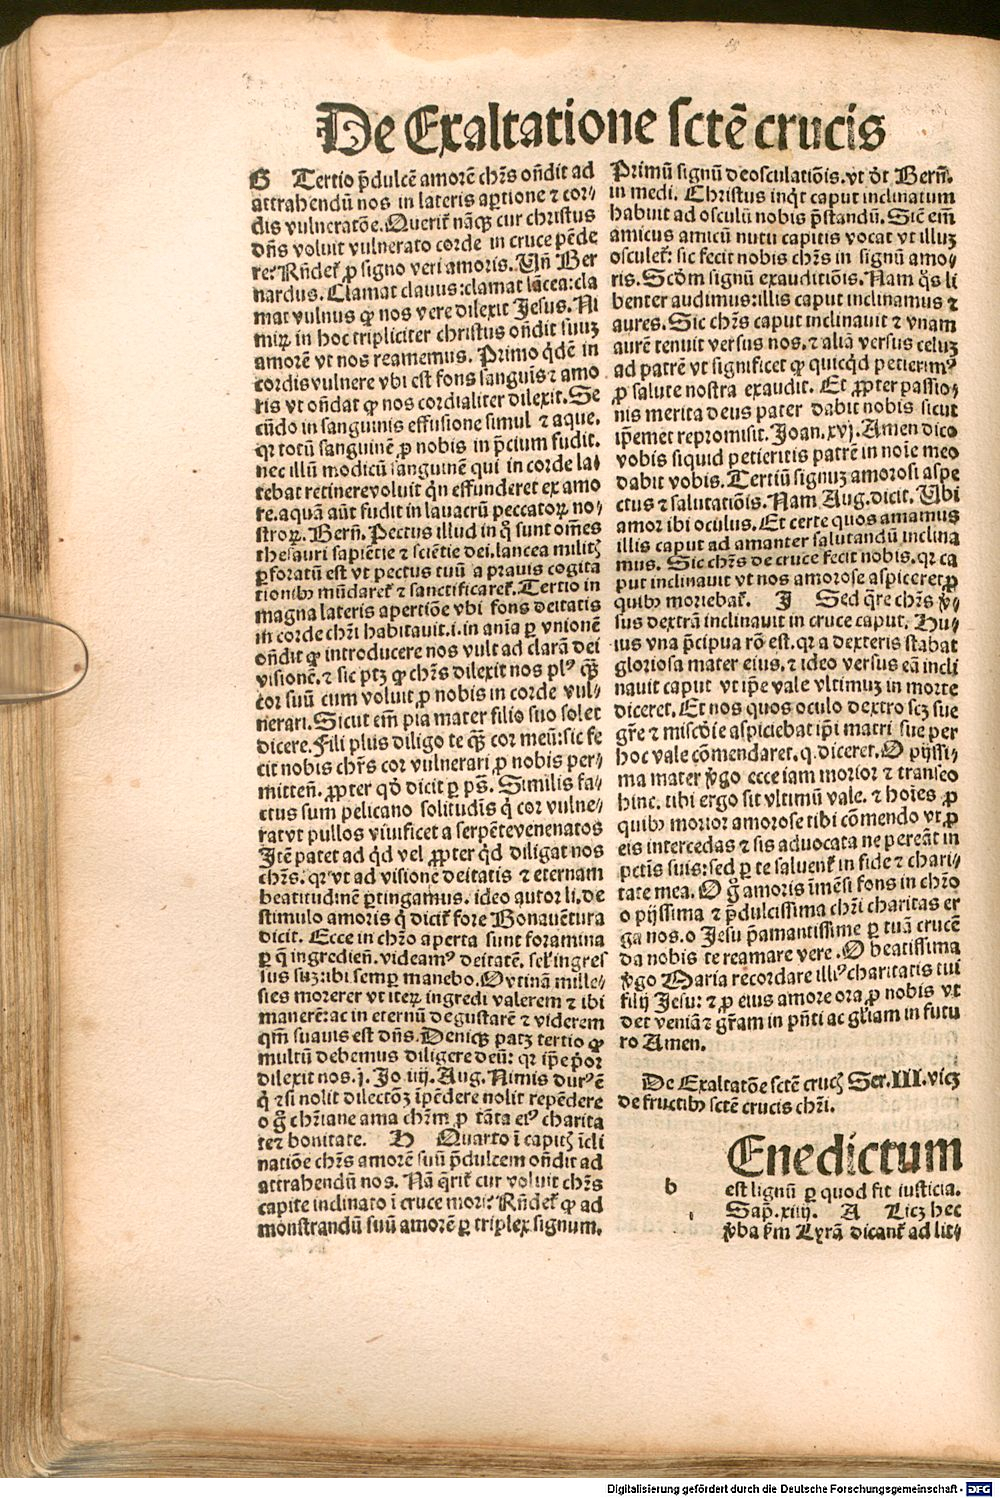 De Exaltatione sctē crucis
G Tertio p̄dulcē amorē chr̄s on̄dit ad
attrahendū nos in lateris aꝑtione ⁊ cor-
dis vulneratōe. Queriť nāqꝫ cur christus
dn̄s voluit vulnerato corde in cruce pēde
re? Rn̄deť ꝓ signo veri amoris. Un̄ Ber
nardus. Clamat clauus: clamat lācea: cla
mat vulnus ꝙ nos vere dilexit Jesus. Ni
miꝝ in hoc tripliciter christus on̄dit suuꝫ
amorē vt nos reamemus. Primo q̇dē in
cordis vulnere vbi est fons sanguīs ⁊ amo
ris vt on̄dat ꝙ nos cordialiter dilexit. Se
cūdo in sanguinis effusione simul ⁊ aque.
qꝛ totū sanguinē ꝓ nobis in p̄cium fudit.
nec illū modicū sanguinē qui in corde la-
tebat retinere voluit q̇n effunderet ex amo
re. aquā aūt fudit in lauacrū peccatoꝝ no-
stroꝝ. Bern̄. Pectus illud in q̊ sunt om̄es
thesauri sapiētie ⁊ sciētie dei. lancea militꝭ
ꝑforatū est vt pectus tuū a prauis cogita
tionibꝫ mūdareť ⁊ sanctificareť. Tertio in
magna lateris apertiōe vbi fons deitatis
in corde chr̄i habitauit. i. in anīa ꝑ vnionē
on̄dit ꝙ introducere nos vult ad clarā dei
visionē. ⁊ sic ptꝫ ꝙ chr̄s dilexit nos plꝰ qꝫ̄
cor suū cum voluit ꝓ nobis in corde vul-
nerari. Sicut em̄ pia mater filio suo solet
dicere. Fili plus diligo te qꝫ̄ cor meū: sic fe
cit nobis chr̄s cor vulnerari ꝓ nobis per-
mitten̄. ꝓpter qd̓ dicit ꝑ ps̄. Similis fa-
ctus sum pelicano solitudīs q̇ cor vulne-
rat vt pullos viuificet a serpēte venenatos
Jtē patet ad q̇d vel ꝓpter q̇d diligat nos
chr̄s. qꝛ vt ad visionē deitatis ⁊ eternam
beatitudinē ꝑtingamus. ideo autor li. de
stimulo amoris q̇ diciť fore Bonauētura
dicit. Ecce in chr̄o aperta sunt foramina
ꝑ q̄ ingredien̄. videamꝰ deitatē. sꝫ ingres
sus suꝫ ibi semꝑ manebo. O vtinā mille-
sies morerer vt iteꝝ ingredi valerem ⁊ ibi
manerē: ac in eternū degustarē ⁊ viderem
qm̄ suauis est dn̄s. Deniqꝫ patꝫ tertio ꝙ
multū debemus diligere deū: qꝛ ip̄e p̓or
dilexit nos. j. Jo iiij. Aug. Nimis durꝰ ē
q̇ ⁊ si nolit dilectōꝫ īpēdere nolit repēdere
o g̊ chr̄iane ama chr̄m ꝓ tāta eiꝰ charita
te ⁊ bonitate. H Quarto ī capitꝭ īcli
natiōe chr̄s amorē suū p̄dulcem on̄dit ad
attrahendū nos. Nā q̄riť cur voluit chr̄s
capite inclinato ī cruce mori? Rn̄deť ꝙ ad
monstrandū suū amorē ꝑ triplex signum.
Primū signū deosculatiōis. vt d̓t Bern̄.
in medi. Christus inq̇t caput inclinatum
habuit ad osculū nobis p̄standū. Sic em̄
amicus amicū nutu capitis vocat vt illuꝫ
osculeť: sic fecit nobis chr̄s in signū amo-
ris. Scd̓m signū exauditiōis. Nam q̊s li
benter audimus: illis caput inclinamus ⁊
aures. Sic chr̄s caput inclinauit ⁊ vnam
aurē tenuit versus nos. ⁊ aliā versus celuꝫ
ad patrē vt significet ꝙ quicq̇d petierimꝰ
ꝓ salute nostra exaudit. Et ꝓpter passio-
nis merita deus pater dabit nobis sicut
ip̄emet repromisit. Joan. xvj. Amen dico
vobis siquid petieritis patrē in noīe meo
dabit vobis. Tertiū signuꝫ amorosi aspe
ctus ⁊ salutatiōis. Nam Aug. dicit. Ubi
amor ibi oculus. Et certe quos amamus
illis caput ad amanter salutandū inclina
mus. Sic chr̄s de cruce fecit nobis. qꝛ ca
put inclinauit vt nos amorose aspiceret ꝓ
quibꝫ moriebať. J Sed q̄re chr̄s v̓-
sus dextrā inclinauit in cruce caput. Hu-
ius vna p̄cipua rō est. qꝛ a dexteris stabat
gloriosa mater eius. ⁊ ideo versus eā incli
nauit caput vt ip̄e vale vltimuꝫ in morte
diceret. Et nos quos oculo dextro scꝫ sue
gr̄e ⁊ miscd̓ie aspiciebat ip̄i matri sue per
hoc vale cōmendaret. q. diceret. O pijssi-
ma mater v̓go ecce iam morior ⁊ transeo
hinc. tibi ergo sit vltimū vale. ⁊ hoīes ꝓ
quibꝫ morior amorose tibi cōmendo vt ꝓ
eis intercedas ⁊ sis aduocata ne pereāt in
pctīs suis: sed ꝑ te saluenť in fide ⁊ chari-
tate mea. O g̊ amoris īmēsi fons in chr̄o
o pijssima ⁊ p̄dulcissima chr̄i charitas er
ga nos. o Jesu p̄amantissime ꝑ tuā crucē
da nobis te reamare vere. O beatissima
v̓go Maria recordare illiꝰ charitatis tui
filij Jesu: ⁊ ꝓ eius amore ora ꝓ nobis vt
det veniā ⁊ gr̄am in pn̄ti ac gl̄iam in futu
ro Amen.
De Exaltatōe sctē crucꝭ Ser. III. vicꝫ
de fructibꝫ sctē crucis chr̄i.
b Enedictum
est lignū ꝑ quod fit iusticia.
Sap̄. xiiij. A Licꝫ hec
v̓ba ẜm Lyrā dicanť ad lit-
Digitalisierung gefördert durch die Deutsche Forschungsgemeinschaft - DFG